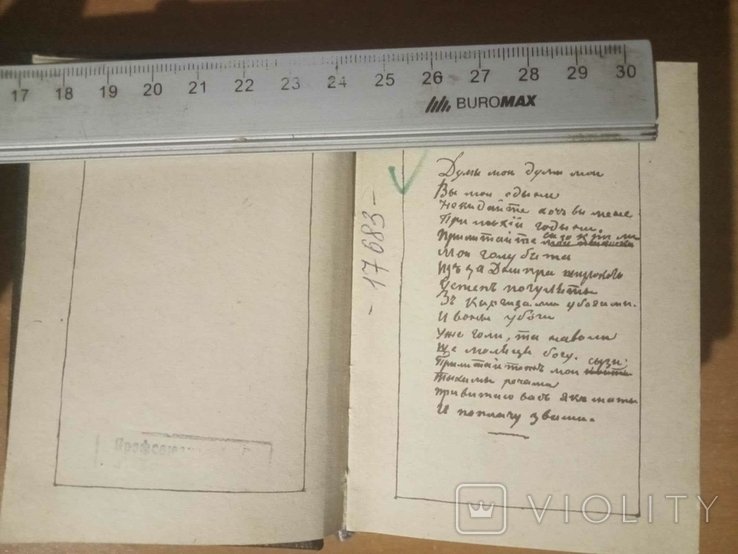 17 18 19 20 21 22 23 24 25 26 27 28 29 30
BUROMAX
- 17683 -
Думы мои думи мои
Вы мои едыни
Некидайте хочь вы мене
При лыхій годыни.
Прилитайте сызокрыли
Мои голубята
Изъ за Днипра широкого
Устепъ погуляты
Зъ Киргизами убогими.
И воны убоги
Уже голи, та на воли
Ще молятця богу.
сызи
Прилитайтежъ мои
Тыхими речами
Привитаю васъ якъ маты
И поплачу зъ вами.
VIOLITY